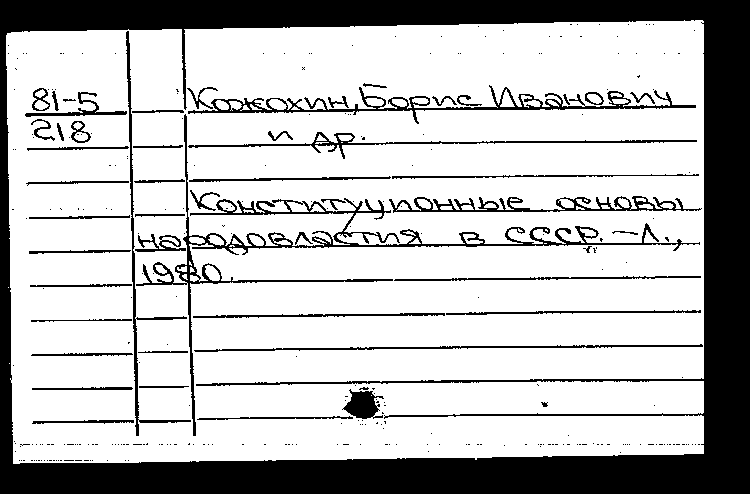 81-5 Кожохин, Борис Иванович
218 и др.
Конституционные основы
народовластия в СССР. – Л.,
1980.